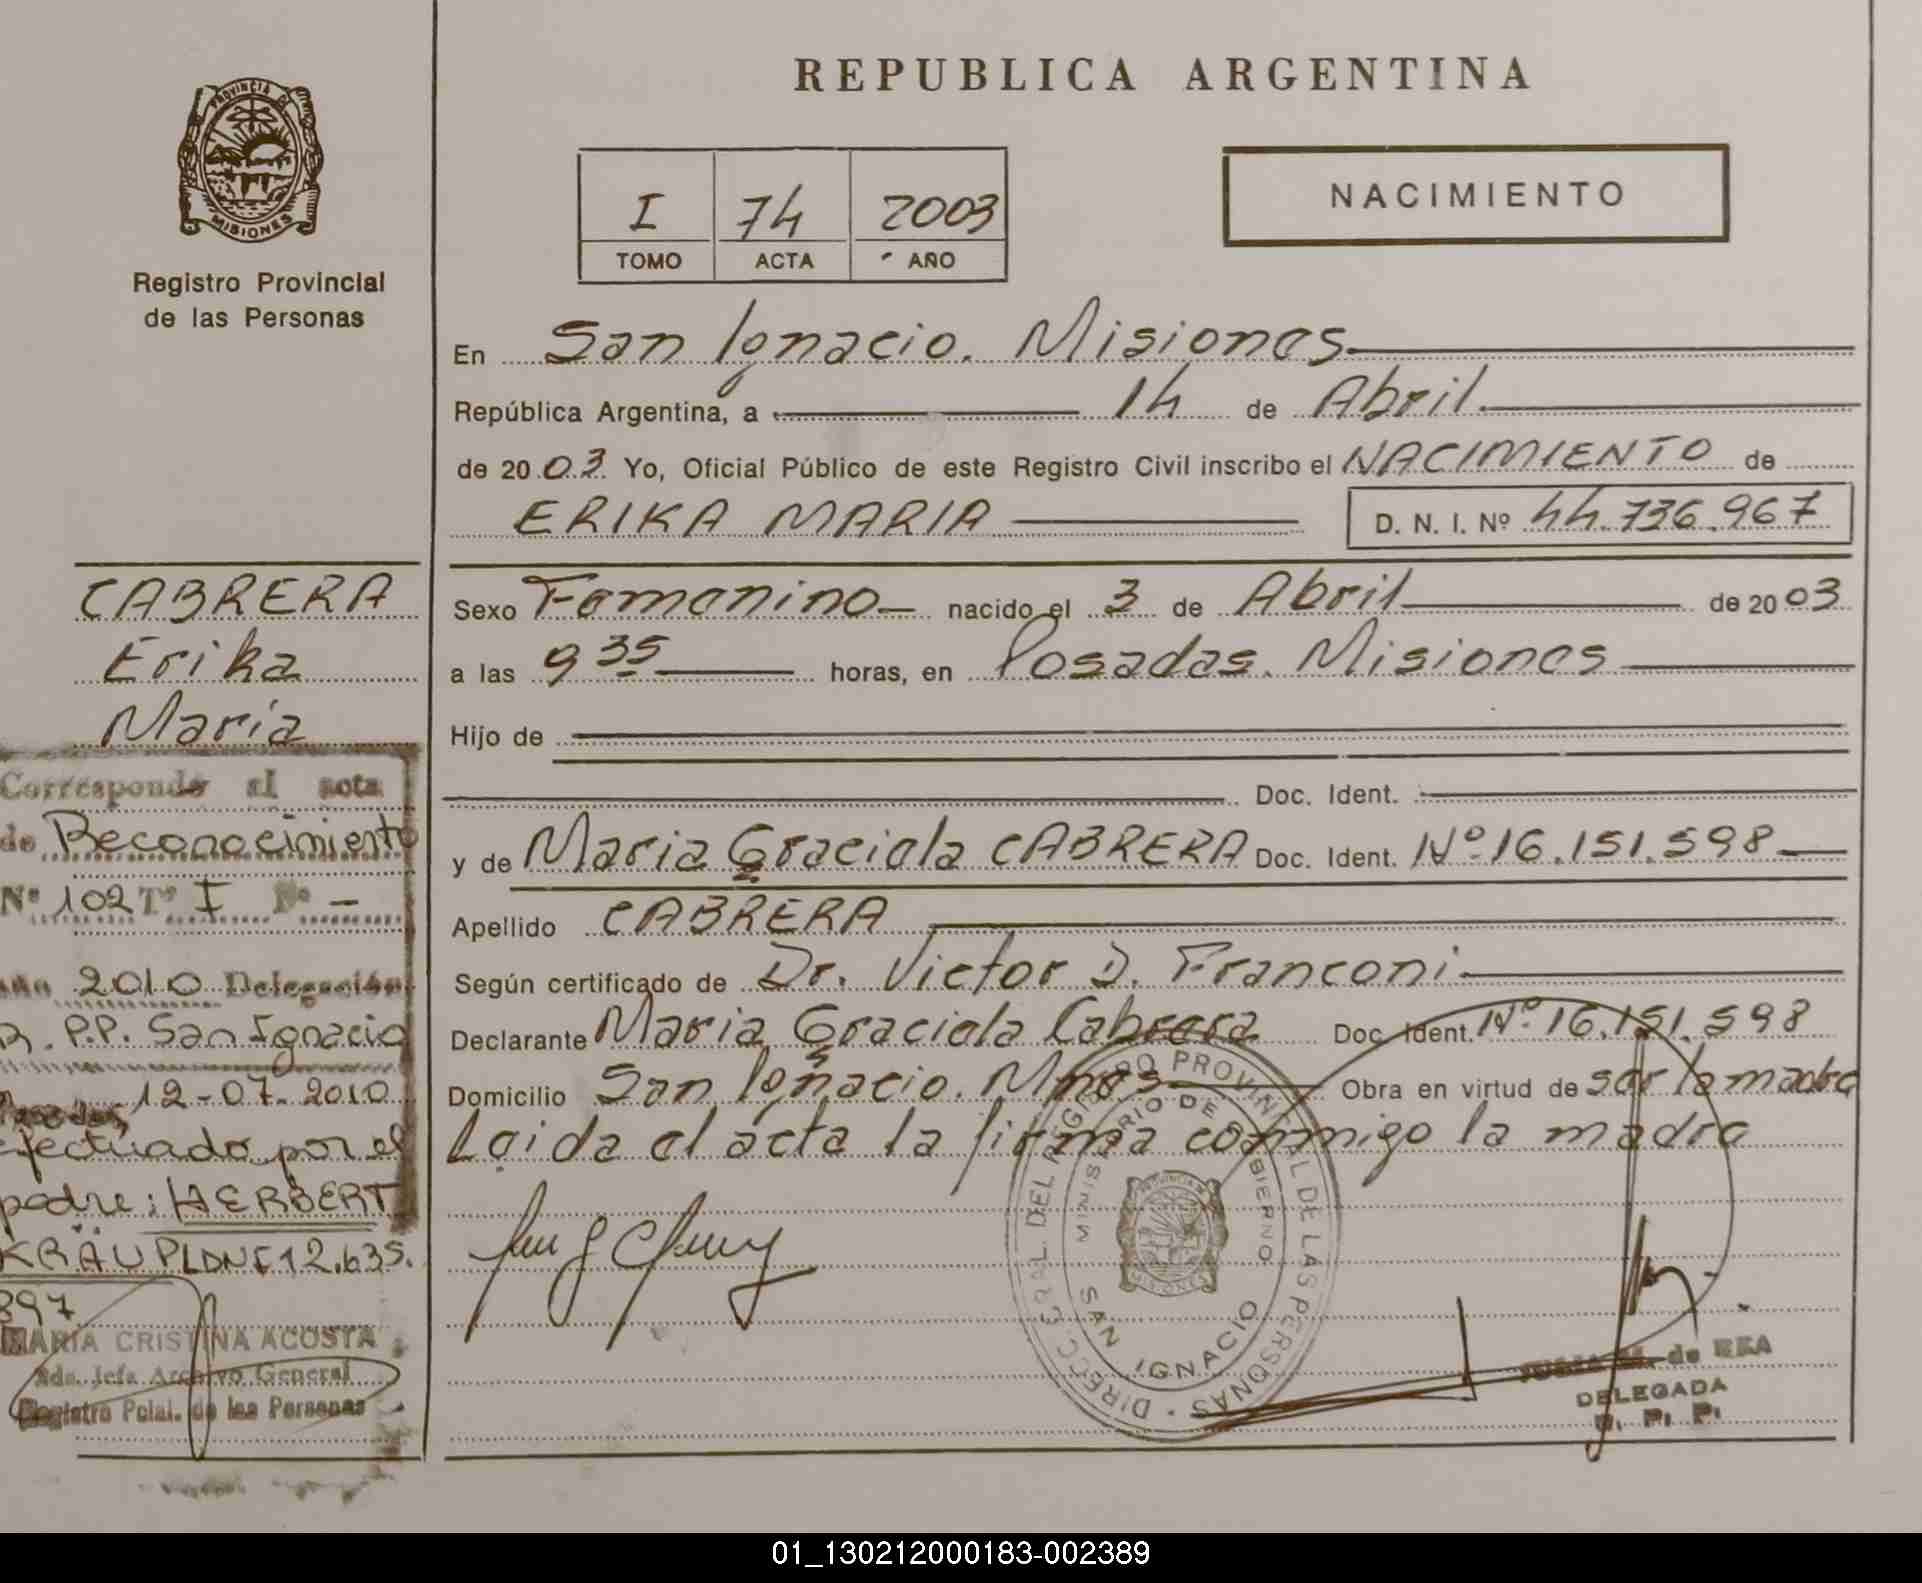 REPUBLICA ARGENTINA
PROVINCIA DE
MISIONES
Registro Provincial
de las Personas
I 74 2003
TOMO ACTA AÑO
NACIMIENTO
En San Ignacio. Misiones
República Argentina, a 14 de Abril
de 2003 Yo, Oficial Público de este Registro Civil inscribo el NACIMIENTO de
ERIKA MARIA D. N. I. Nº 44.736.967
Sexo Femenino nacido el 3 de Abril de 2003
a las 9 35 horas, en Posadas. Misiones
Hijo de
Doc. Ident.
y de Maria Graciela CABRERA Doc. Ident. Nº 16.151.598
Apellido CABRERA
Según certificado de Dr. Victor D. Franconi
Declarante Maria Graciela Cabrera Doc. Ident. Nº 16.151.598
Domicilio San Ignacio. Mnes Obra en virtud de ser la madre
Leida el acta la firma conmigo la madre
CABRERA
Erika
Maria
Corresponde al acta
de Reconocimiento
Nº 102 Tº I Fº -
año 2010 Delegación
R. P.P. San Ignacio
12-07-2010
efectuado por el
padre: HERBERT
KRÄUPL DNI 12.635.
897
MARIA CRISTINA ACOSTA
2da. Jefa Archivo General
Registro Pcial. de las Personas
DIRECC. GRAL. DEL REGISTRO PROVINCIAL DE LAS PERSONAS
MINISTERIO DE GOBIERNO
SAN IGNACIO
de REA
DELEGADA
R. P. P.
01_130212000183-002389